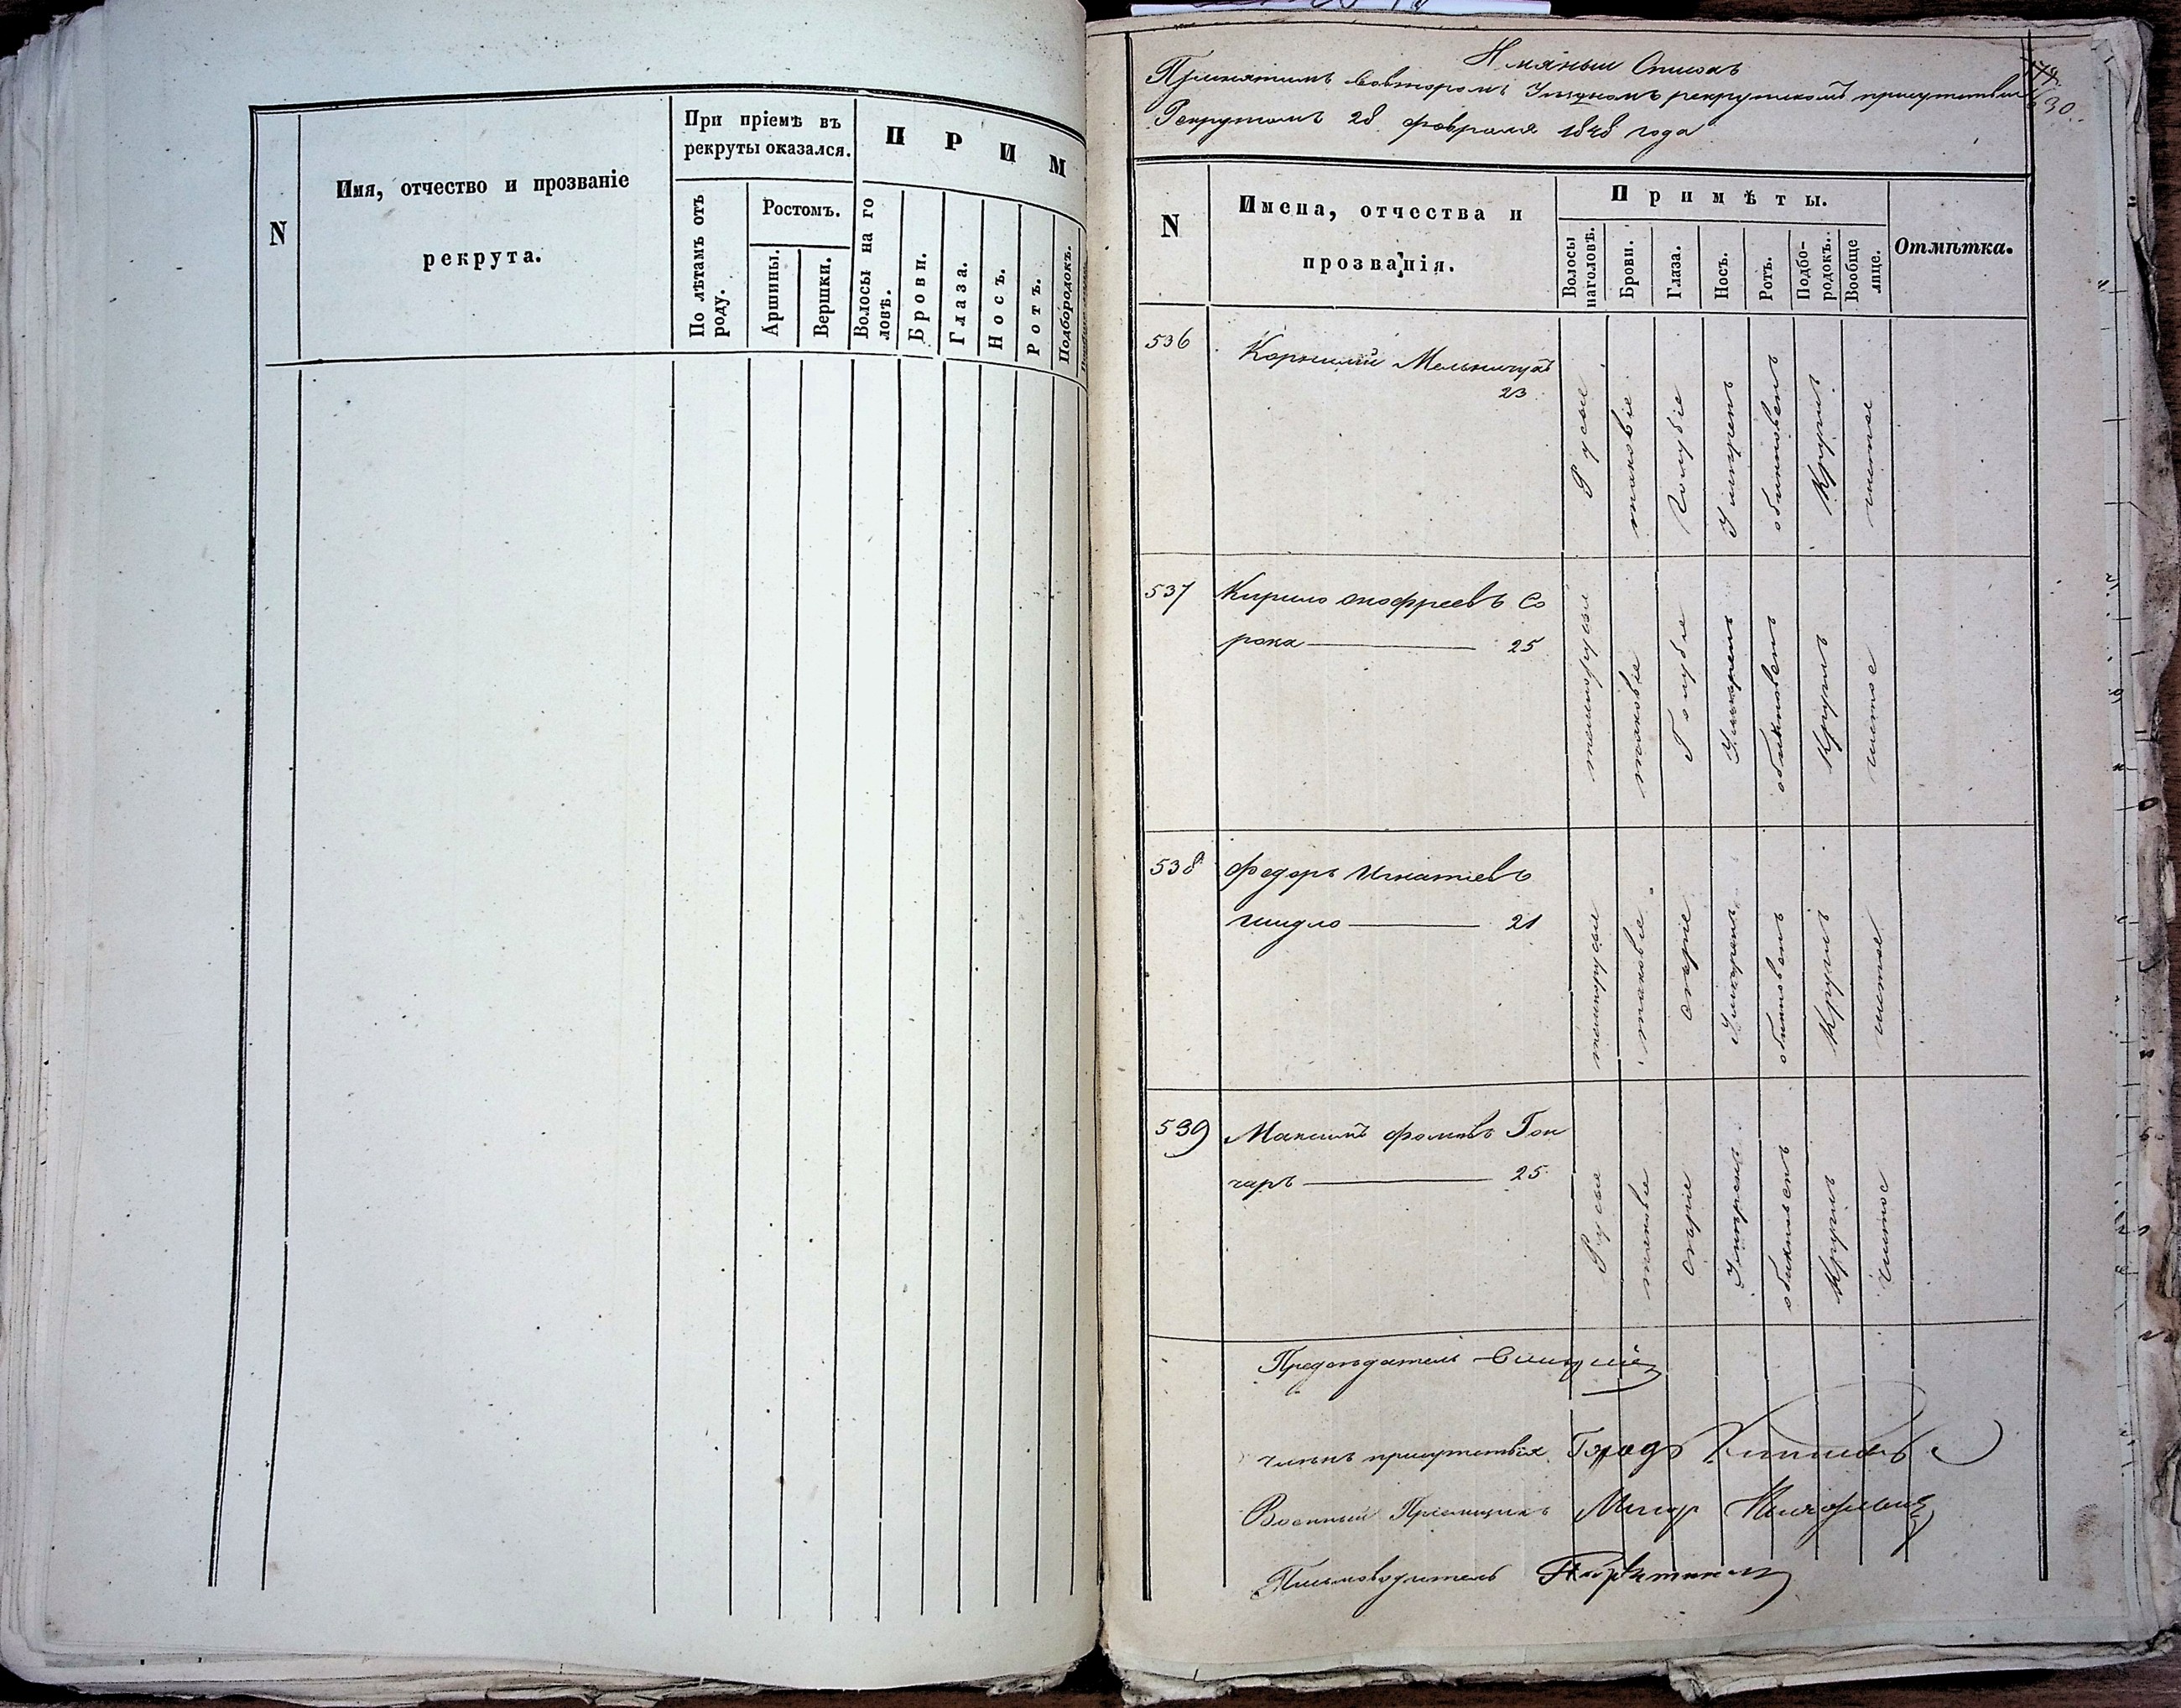 N
Имя, отчество и прозваніе
рекрута.
При пріемѣ въ
рекруты оказался.
По лѣтамъ отъ
роду.
Ростомъ.
Аршины.
Вершки.
П Р И М
Волосы на го
ловѣ.
Брови.
Глаза.
Носъ.
Ротъ.
Подбородокъ.
Имяныи Списокъ
Принятимъ вовторомъ Уѣздномъ рекрутскомъ присутствіи
Рекрутомъ 28 февраля 1848 года
174
630.
N
Имена, отчества и
прозванія.
Примѣты.
Волосы
наголовѣ.
Брови.
Глаза.
Носъ.
Ротъ.
Подбо-
родокъ.
Вообще
лице.
Отмѣтка.
536
Корнилій Мельничукъ
23
Русые
таковіе
Голубіе
Умѣрен
обикновенъ
Круглъ
чистое
537
Кирило Онофреевъ Со
рока 25
темнорусые
таковіе
Голубіе
Умѣренъ
обикновенъ
Круглъ
чистое
538
Федоръ Игнатіевъ
Шидло 21
темнорусые
таковіе
сѣріе
Умѣренъ
обикновенъ
Круглъ
чистое
539
Максимъ Фоминъ Гон
чаръ 25
Русые
таковіе
сѣріе
Умѣренъ
обикновенъ
Круглъ
чистое
Предсѣдатель
Членъ присутствія
Военный Пріемщикъ Маіоръ
Письмоводитель